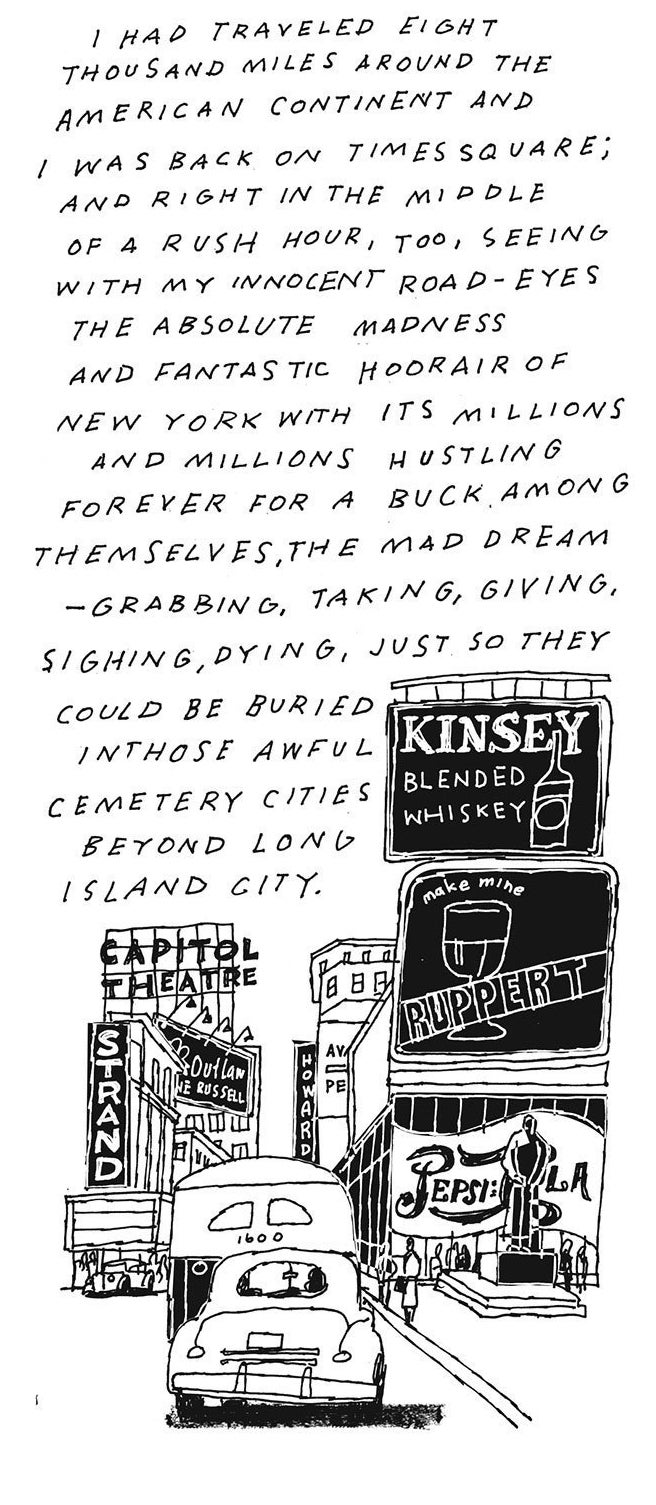 I HAD TRAVELED EIGHT
THOUSAND MILES AROUND THE
AMERICAN CONTINENT AND
I WAS BACK ON TIMES SQUARE;
AND RIGHT IN THE MIDDLE
OF A RUSH HOUR, TOO, SEEING
WITH MY INNOCENT ROAD-EYES
THE ABSOLUTE MADNESS
AND FANTASTIC HOORAIR OF
NEW YORK WITH ITS MILLIONS
AND MILLIONS HUSTLING
FOREVER FOR A BUCK AMONG
THEMSELVES, THE MAD DREAM
—GRABBING, TAKING, GIVING,
SIGHING, DYING, JUST SO THEY
COULD BE BURIED
IN THOSE AWFUL
CEMETERY CITIES
BEYOND LONG
ISLAND CITY.
KINSEY
BLENDED
WHISKEY
make mine
RUPPERT
CAPITOL
THEATRE
STRAND
Outlaw
NE RUSSELL
HOWARD
AV
PE
PEPSI: LA
1600